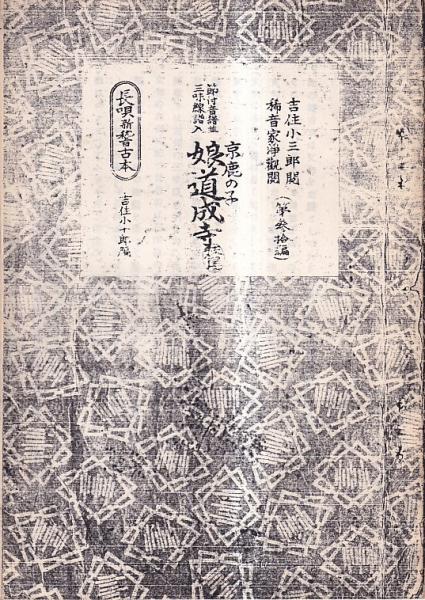 吉住小三郎閲
稀音家淨觀閲
(第参拾編)
節付音譜並
三味線譜入
京鹿の子
娘道成寺
長唄新稽古本
吉住小十郎編